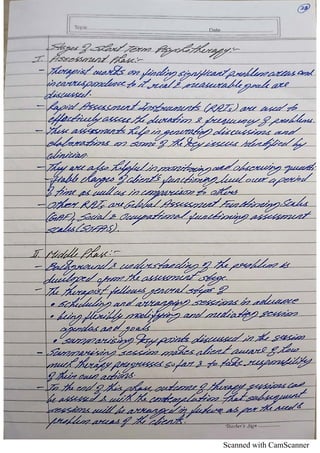 28
Topic
Date
Stages of Short Term Psychotherapy:-
I. Assessment Phase:-
- Therapist works on finding significant problem areas and
in correspondence to it real & measurable goals are
discussed.
- Rapid Assessment Instruments (RATs) are used to
effectively assess the duration & frequency of problems.
- These assessments help in generating discussions and
elaborations on some of the key issues identified by
clinician.
- They are also helpful in monitoring and observing quanti-
fiable changes of client's functioning level over a period
of time as well as in comparison to others.
- Other RATs are Global Assessment Functioning Scales
(GAF), Social & Occupational functioning assessment
scales (SOFAS).
II. Middle Phase:-
- Background & understanding of the problem is
developed upon the assessment stage.
- The therapist follows general steps of
• scheduling and arranging sessions in advance
• being flexibly modifying and mediating session
agendas and goals
• summarising key points discussed in the session
- Summarising session makes client aware of how
much therapy progresses so far & to take responsibility
of their own actions.
- To the end of this phase outcome of therapy sessions can
be assessed & with the contemplation that subsequent
sessions will be arranged in future as per the need &
problem areas of the clients.
Teacher's Sign
Scanned with CamScanner